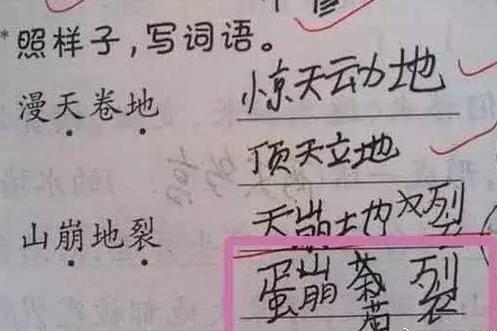 *照样子,写词语。
漫天卷地 惊天动地
顶天立地
山崩地裂 天崩地裂
蛋崩菊裂